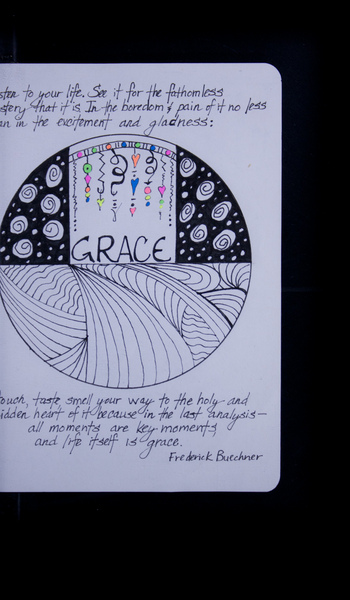 sten to your life. See it for the fathomless
stery that it is. In the boredom & pain of it no less
an in the excitement and gladness:
GRACE
ouch, taste, smell your way to the holy and
idden heart of it because in the last analysis—
all moments are key moments,
and life itself is grace.
Frederick Buechner